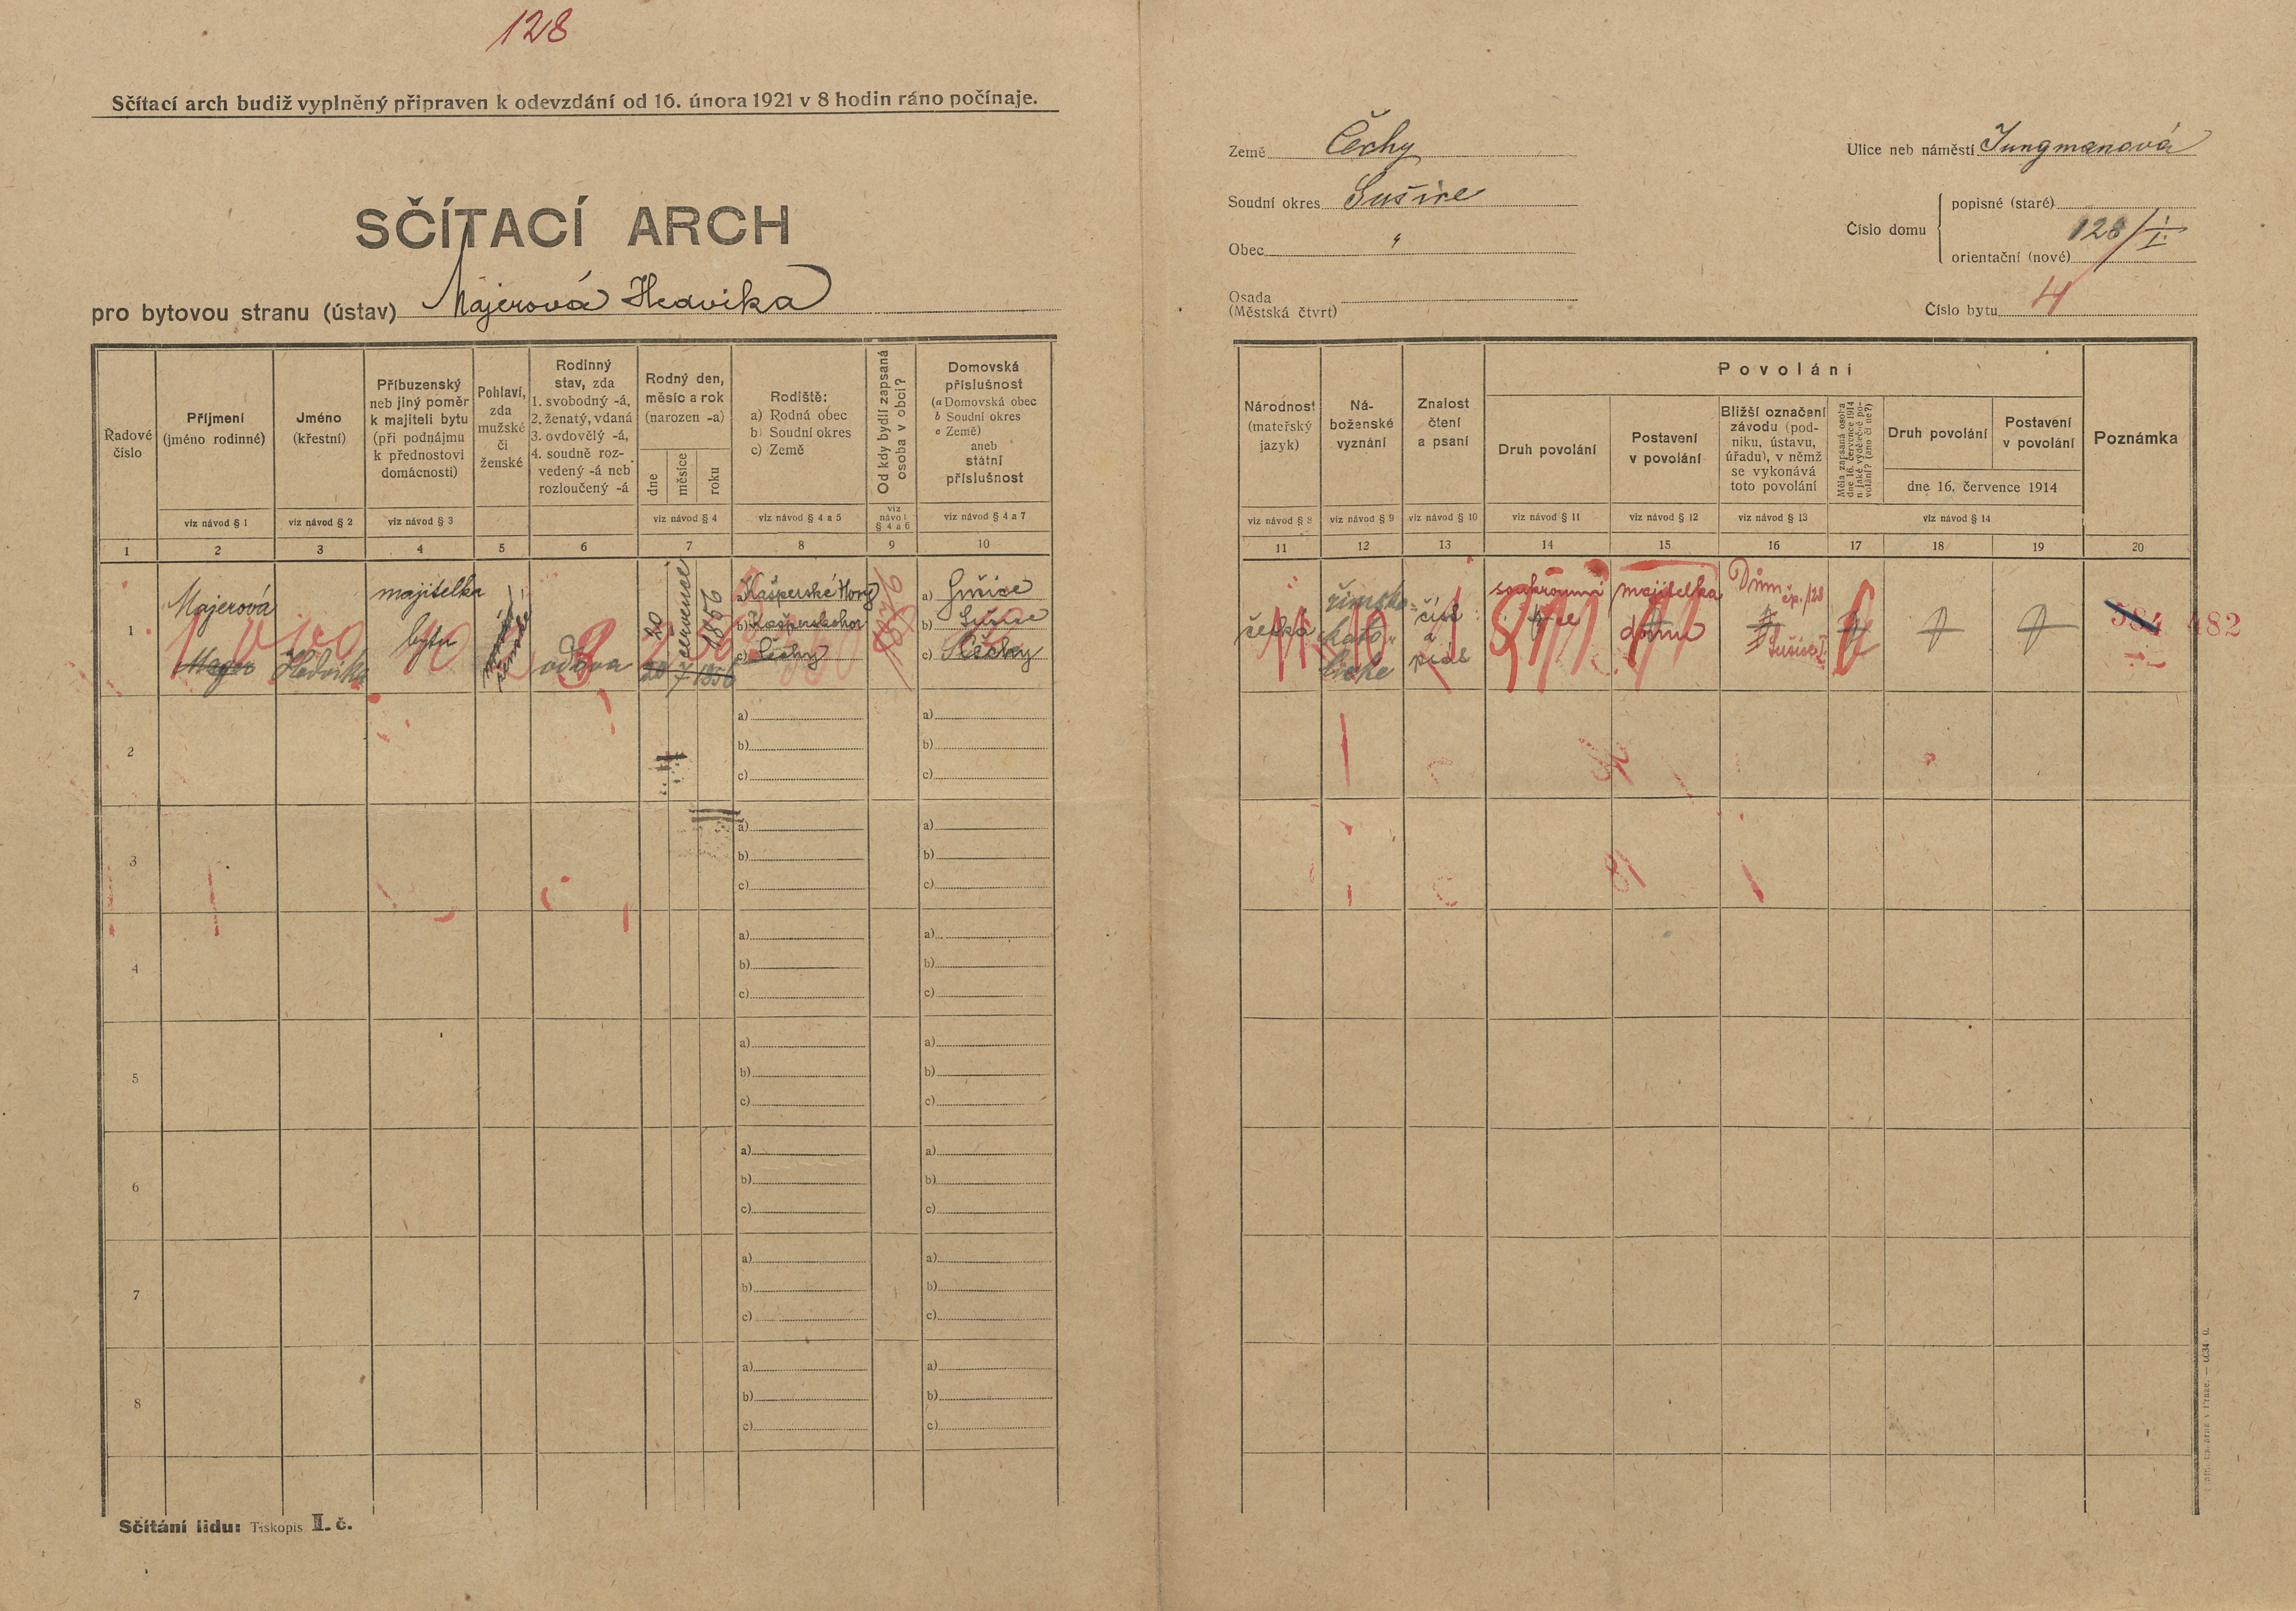 128
Sčítací arch budiž vyplněný připraven k odevzdání od 16. února 1921 v 8 hodin ráno počínaje.
SČÍTACÍ ARCH
pro bytovou stranu (ústav) Majerová Hedvika
Země Čechy
Soudní okres Sušice
Obec "
Osada
(Městská čtvrt)
Ulice neb náměstí Jungmanová
Číslo domu
popisné (staré)
128/I.
orientační (nové)
Číslo bytu 4
Řadové číslo
Příjmení (jméno rodinné)
Jméno (křestní)
Příbuzenský neb jiný poměr k majiteli bytu (při podnájmu k přednostovi domácnosti)
Pohlaví, zda mužské či ženské
Rodinný stav, zda 1. svobodný -á, 2. ženatý, vdaná 3. ovdovělý -á, 4. soudně rozvedený -á neb rozloučený -á
Rodný den, měsíc a rok (narozen -a)
dne
měsíce
roku
Rodiště:
a) Rodná obec
b) Soudní okres
c) Země
Od kdy bydlí zapsaná osoba v obci?
Domovská příslušnost
(a Domovská obec
b Soudní okres
c Země)
aneb státní příslušnost
viz návod § 1
viz návod § 2
viz návod § 3
viz návod § 4
viz návod § 4 a 5
viz návod § 4 a 6
viz návod § 4 a 7
1 2 3 4 5 6 7 8 9 10
Národnost (mateřský jazyk)
Náboženské vyznání
Znalost čtení a psaní
Povolání
Druh povolání
Postavení v povolání
Bližší označení závodu (podniku, ústavu, úřadu), v němž se vykonává toto povolání
Měla zapsaná osoba dne 16. července 1914 nějaké výdělečné povolání? (ano či ne?)
Druh povolání
Postavení v povolání
dne 16. července 1914
Poznámka
viz návod § 8
viz návod § 9
viz návod § 10
viz návod § 11
viz návod § 12
viz návod § 13
viz návod § 14
11 12 13 14 15 16 17 18 19 20
1
Majerová
Hedvika
majitelka
bytu
vdova
20
července
1856
20 7 1856
a) Kašperské Hory
b) Kašperskohor
c) Čechy
a) Sušice
b) Sušice
c) Čechy
česká
římsko-
kato-
licke
číst
a
psát
soukromnice
majitelka
domu
Dům
čp. 128
Sušice I.
384 482
2
a)
b)
c)
a)
b)
c)
3
a)
b)
c)
a)
b)
c)
4
a)
b)
c)
a)
b)
c)
5
a)
b)
c)
a)
b)
c)
6
a)
b)
c)
a)
b)
c)
7
a)
b)
c)
a)
b)
c)
8
a)
b)
c)
a)
b)
c)
Sčítání lidu: Tiskopis II. č.